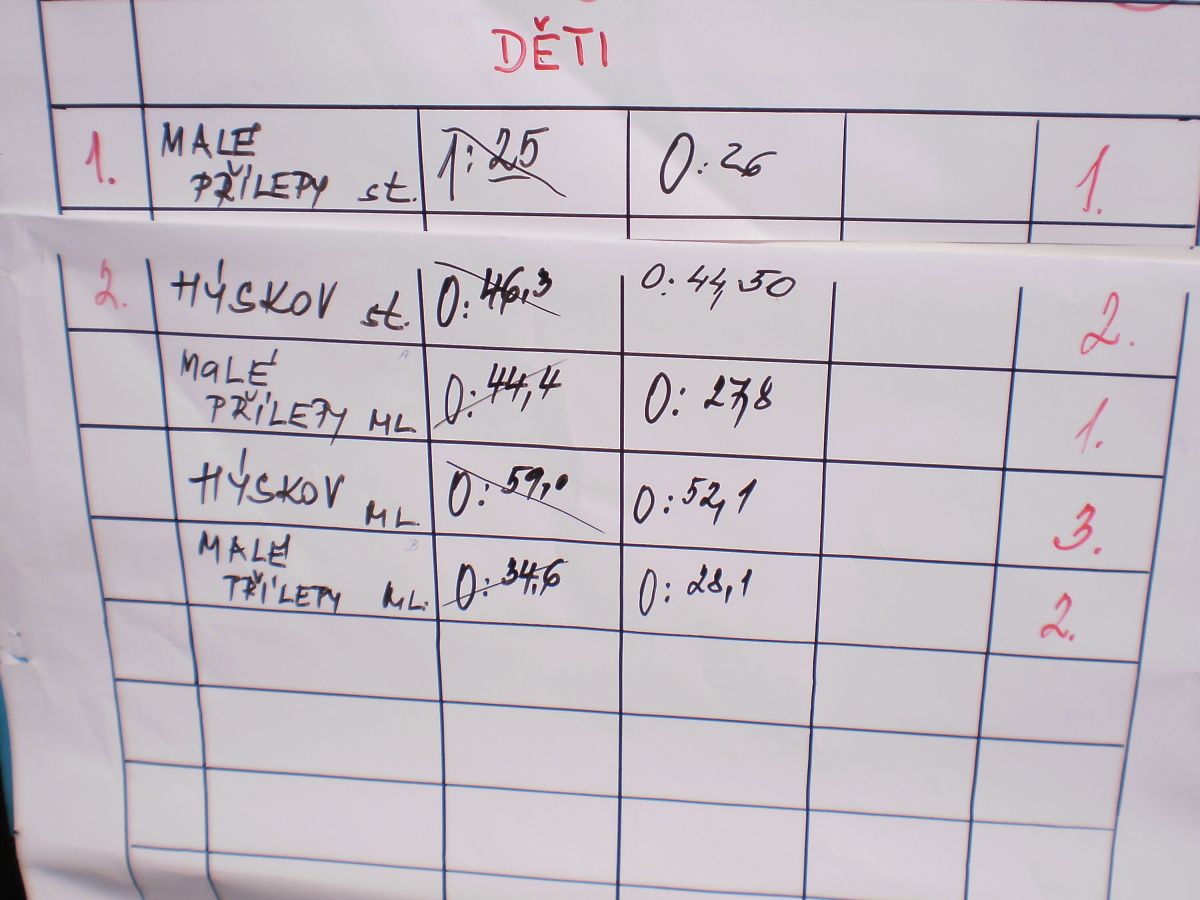 DĚTI
1. MALÉ PŘÍLEPY st. 1:25 0:26 1.
2. HÝSKOV st. 0:46,3 0:44,50 2.
MALÉ PŘÍLEPY ML A 0:44,4 0:27,8 1.
HÝSKOV ML. 0:59,0 0:52,1 3.
MALÉ PŘÍLEPY ML. B 0:34,6 0:28,1 2.